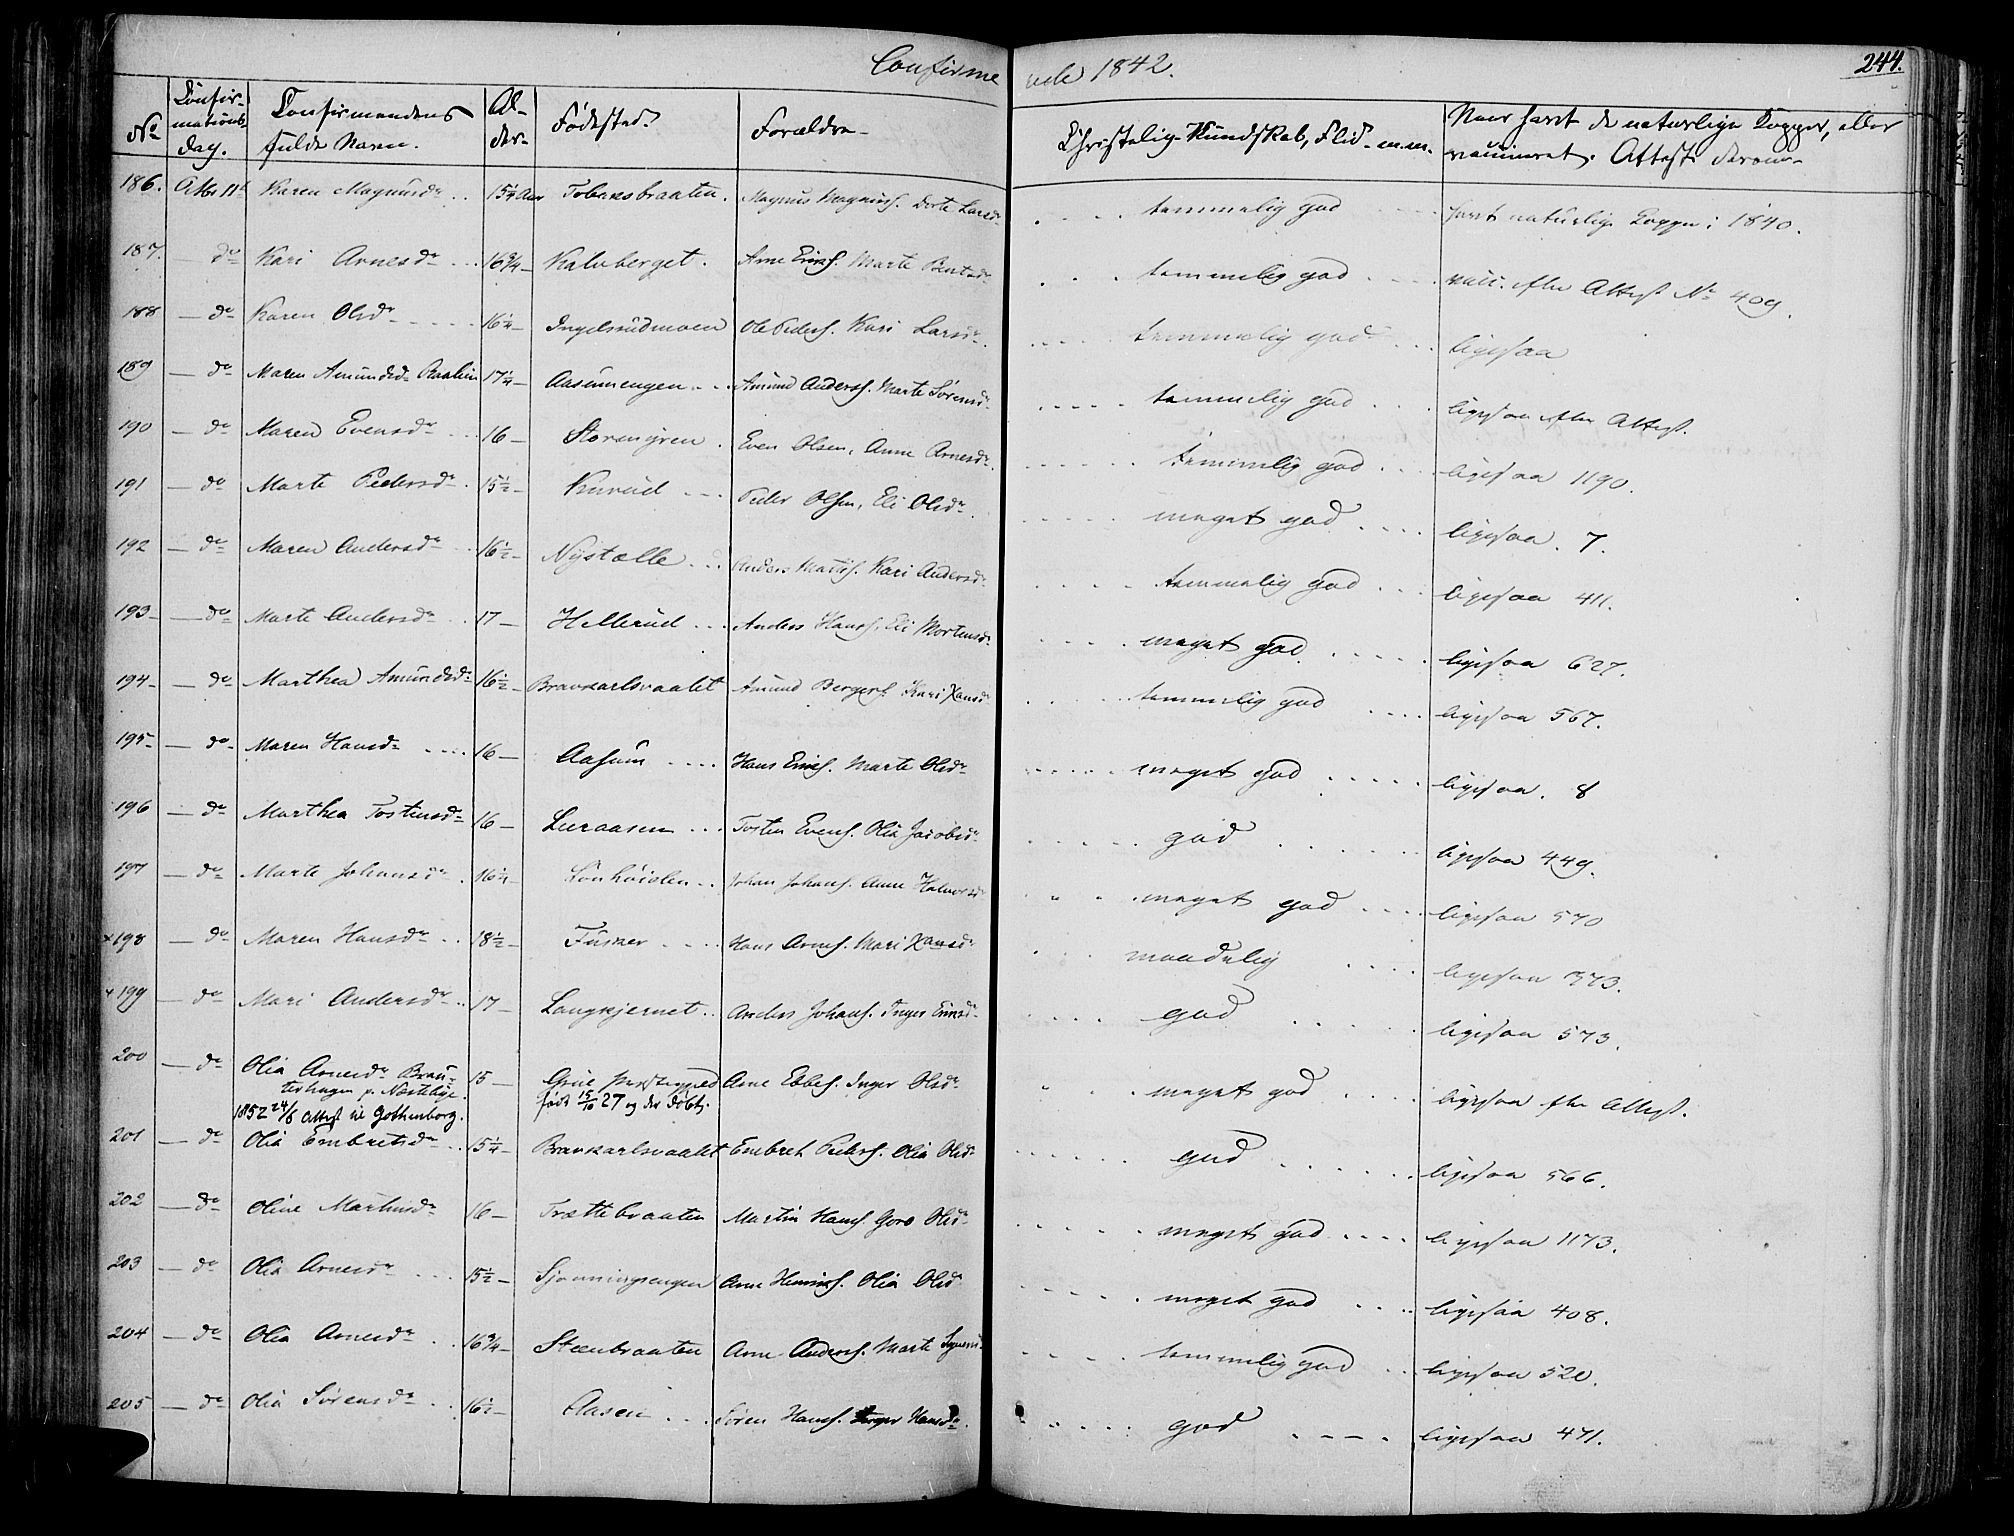 Confirmerede 1842.
244.
No
Confirmations Dag.
Confirmandens fulde Navn.
Alder
Fødested.
Forældre
Christelig Kundskab, Flid m.m.
Naar havt de naturlige Kopper, eller vaccineret. Attest derom
186. Octbr 11te Karen Magnusdr 15 1/4 Aar Tobaksbraaten. Magnus Magnus. Dorte Larsdr temmelig god havt naturlige Kopper i 1840.
187. do Kari Arnesdr 16 3/4 Kalvberget. Arne Erics. Marte Berntsdr temmelig god vacc. efter Attest No 409.
188 do Karen Olsdr 16 1/4 Ingelsrudmoen Ole Peders. Kari Larsdr temmelig god ligesaa
189 do Maren Amundsdr 17 1/4 Aasumengen Amund Anders. Marte Sørensdr temmelig god ligesaa efter Attest.
190 do Maren Evensdr 16 Storemyren. Even Olsen, Anne Arnesdr temmelig god ligesaa 1190.
191 do Marte Pedersdr 15 1/2 Kurud Peder Olsen, Eli Olsdr meget god ligesaa. 7.
192 do Maren Andersdr 16 1/2 Nystælle Anders Mathis. Kari Andersdr temmelig god ligesaa 411.
193 do Marte Andersdr 17 Hellerud Anders Hans. Eli Mortensdr meget god ligesaa 627.
194 do Marthea Amundsdr 16 1/2 Bravkarlsvaalet Amund Bergers. Kari Hansdr temmelig god ligesaa 567.
195 do Maren Hansdr 16 Aasum Hans Erics. Marte Olsdr meget god ligesaa. 8
196 do Marthea Tostensdr 16 Luraasen Tosten Evens. Olia Jacobsdr god ligesaa 449.
197 do Marte Johansdr 16 1/2 Lønhøiden Johan Johans. Anne Halvorsdr meget god ligesaa 570
x198 do Maren Hansdr 18 1/2 Fusker Hans Arnes. Mari Hansdr maadelig ligesaa 373.
x199 do Mari Andersdr 17 Langkjernet Anders Johans. Inger Ericsdr god ligesaa 573.
200 do Olia Arnesdr 15 Grue Præstegjeld Arne Ebbes. Inger Olsdr meget god ligesaa efter Attest.
født 15/10 27 og der døbt.
1852 24/6 Attest til Gothenborg.
201 do Olia Embretsdr 15 1/4 Bravkarlsvaalet Embret Peders. Olia Olsdr god ligesaa 566.
202 do Oline Martinsdr 16 Trættebraaten Martin Hans. Goro Olsdr meget god ligesaa 1173.
203 do Olia Arnesdr 15 1/2 Arne Henriks. Olia Olsd meget god ligesaa 408.
204 do Olia Arnesdr 16 3/4 Steenbraaten Arne Anders. Marte temmelig god ligesaa 520.
205 do Olia Sørensdr 16 1/2 Aasen Søren Hans. Inger Hansdr god ligesaa 471.